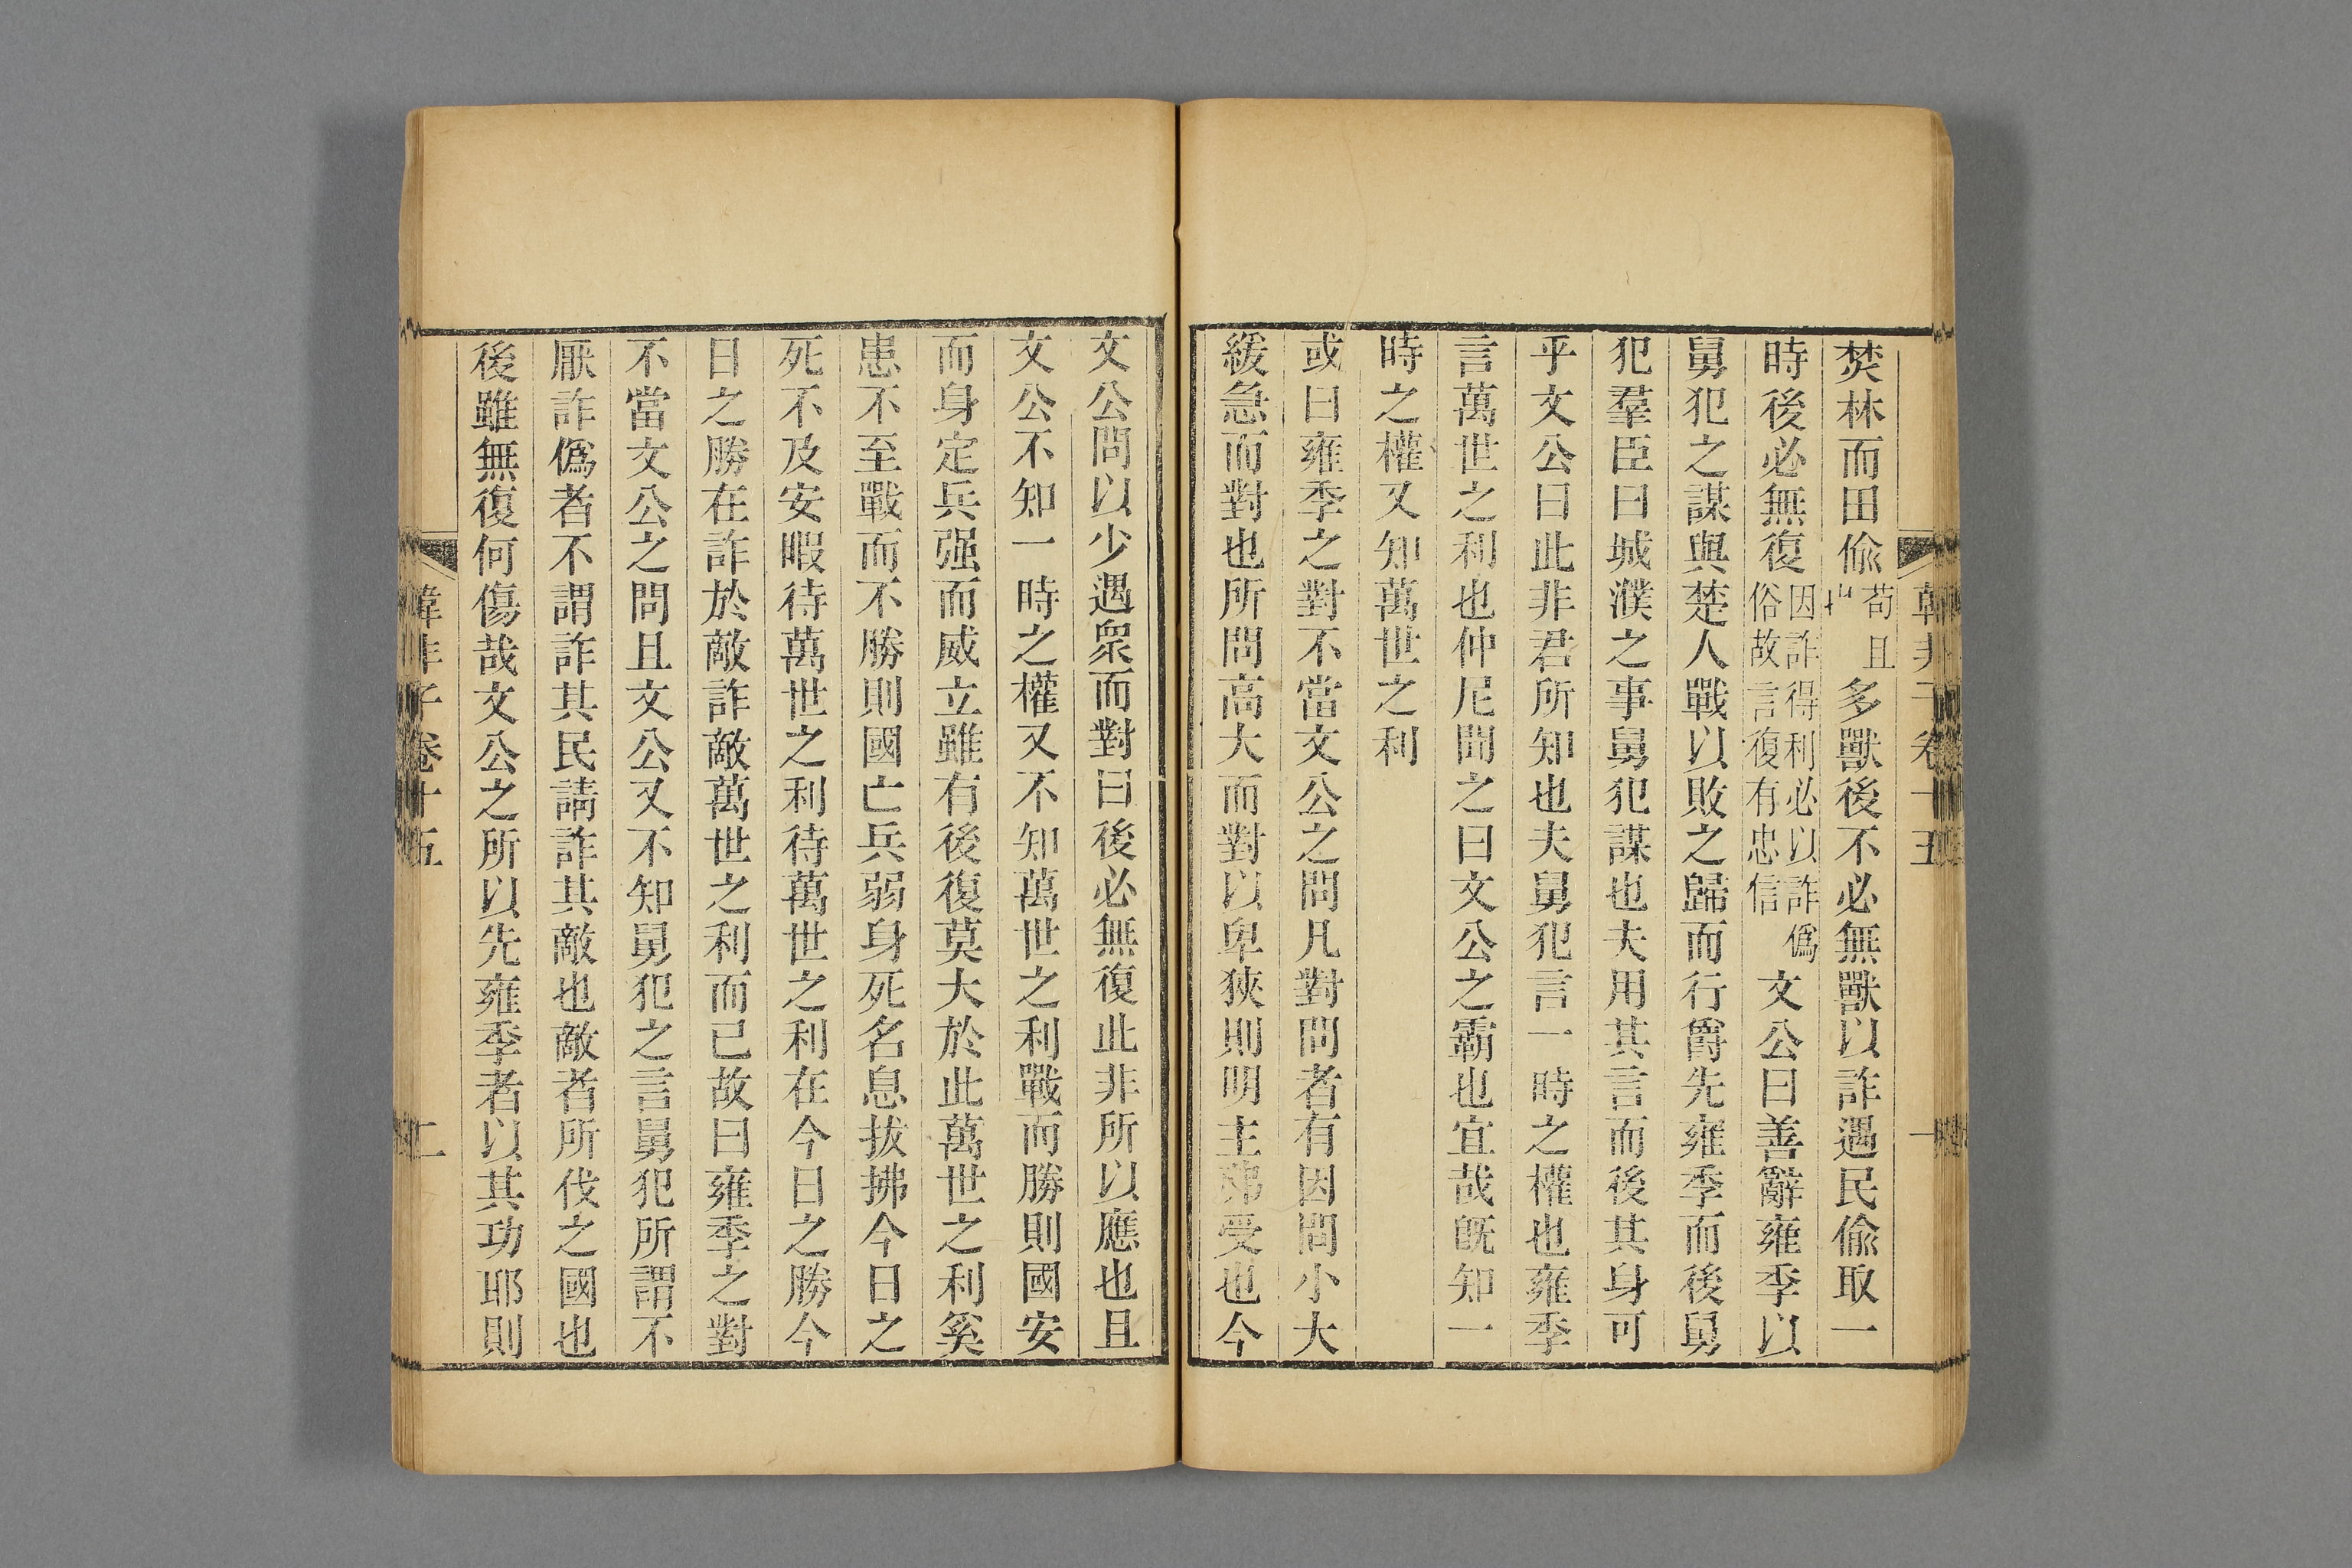 韓非子卷十五
一
焚林而田偸苟且多獸後不必無獸以詐遇民偸取一
時後必無復因詐得利必以詐僞俗故言復有忠信文公曰善辭雍季以
舅犯之謀與楚人戰以敗之歸而行爵先雍季而後舅
犯羣臣曰城濮之事舅犯謀也夫用其言而後其身可
乎文公曰此非君所知也夫舅犯言一時之權也雍季
言萬世之利也仲尼聞之曰文公之霸也宜哉旣知一
時之權又知萬世之利
或曰雍季之對不當文公之問凡對問者有因問小大
緩急而對也所問高大而對以卑狹則明主弗受也今
文公問以少遇衆而對曰後必無復此非所以應也且
文公不知一時之權又不知萬世之利戰而勝則國安
而身定兵强而威立雖有後復莫大於此萬世之利奚
患不至戰而不勝則國亡兵弱身死名息拔拂今日之
死不及安暇待萬世之利待萬世之利在今日之勝今
日之勝在詐於敵詐敵萬世之利而已故曰雍季之對
不當文公之問且文公又不知舅犯之言舅犯所謂不
厭詐僞者不謂詐其民請詐其敵也敵者所伐之國也
後雖無復何傷哉文公之所以先雍季者以其功耶則
韓非子卷十五
二